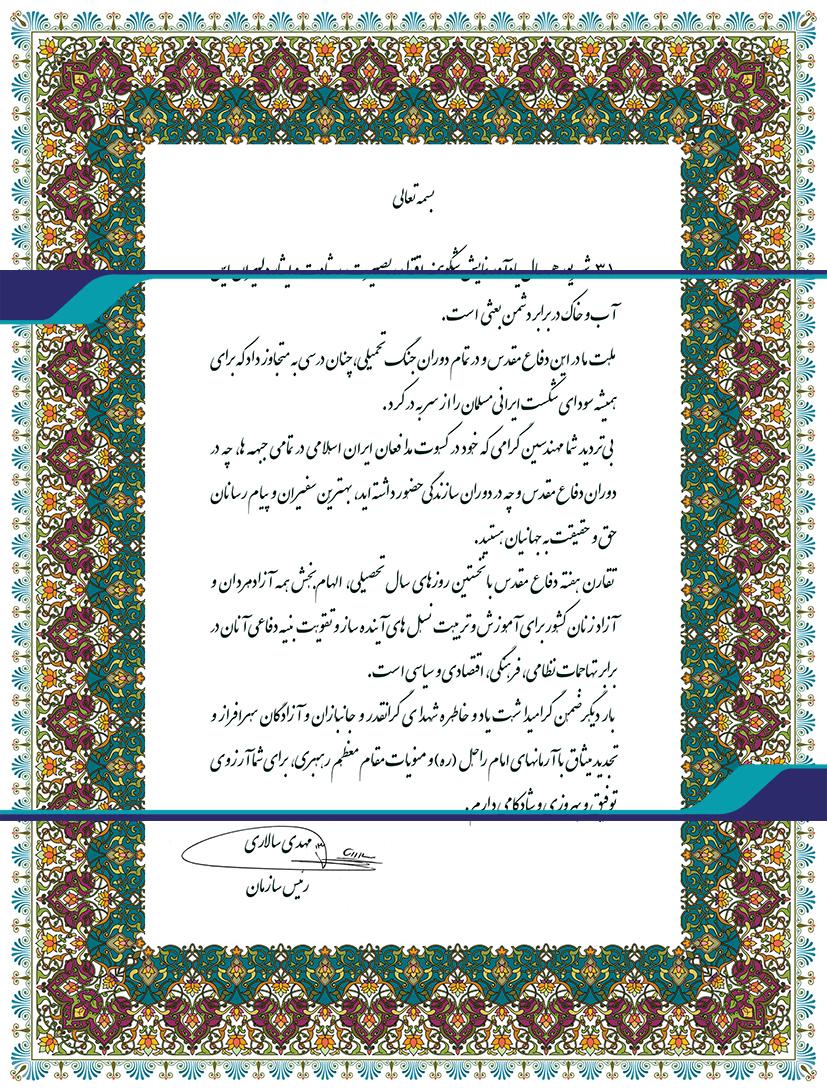 بسمه تعالی
۳۱ شهریور هر سال یادآور نمایش شکوه
آب و خاک در برابر دشمن بعثی است.
ملت ما در این دفاع مقدس و در تمام دوران جنگ تحمیلی، چنان درسی به متجاوز داد که برای
همیشه سودای شکست ایرانی مسلمان را از سر به در کرد.
بی تردید شما مهندسین گرامی که خود در کسوت مدافعان ایران اسلامی در تمامی جبهه ها، چه در
دوران دفاع مقدس و چه در دوران سازندگی حضور داشته اید، بهترین سفیران و پیام رسانان
حق و حقیقت به جهانیان هستید.
تقارن هفته دفاع مقدس با نخستین روزهای سال تحصیلی، الهام بخش همه آزادمردان و
آزاد زنان کشور برای آموزش و تربیت نسل های آینده ساز و تقویت بنیه دفاعی آنان در
برابر تهاجمات نظامی، فرهنگی، اقتصادی و سیاسی است.
بار دیگر ضمن گرامیداشت یاد و خاطره شهدای گرانقدر و جانبازان و آزادگان سرافراز و
تجدید میثاق با آرمانهای امام راحل (ره) و منویات مقام معظم رهبری، برای شما آرزوی
توفیق و بهروزی و شادکامی دارم.
مهدی سالاری
رئیس سازمان